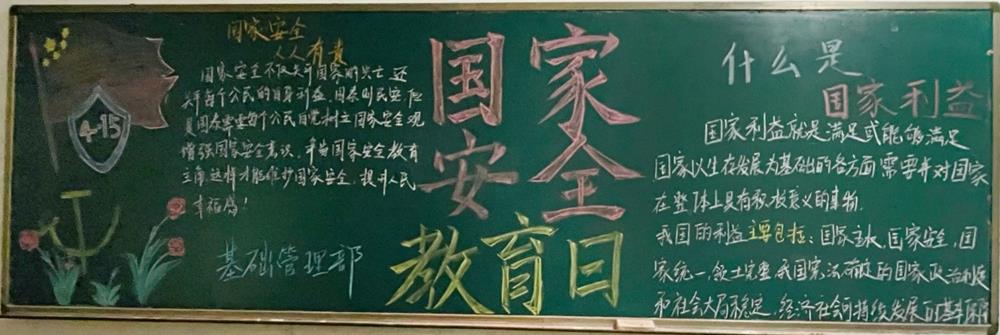 4·15
国家安全
人人有责
国家安全不仅关乎国家的兴亡,还
关乎每个公民的自身利益,国泰则民安,但
是国泰需要每个公民自觉树立国家安全观
增强国家安全意识,并当国家安全教育
这样才能维护国家安全,提升人民
幸福感!
基础管理部
国家
安全
教育日
什么是
国家利益
国家利益就是满足或能够满足
国家以生存发展为基础的各方面需要并对国家
在整体上具有积极意义的事物.
我国的利益主要包括:国家主权,国家安全,国
家统一,领土完整,我国宪法确定的国家政治制度
和社会大局稳定,经济社会可持续发展的基本保障